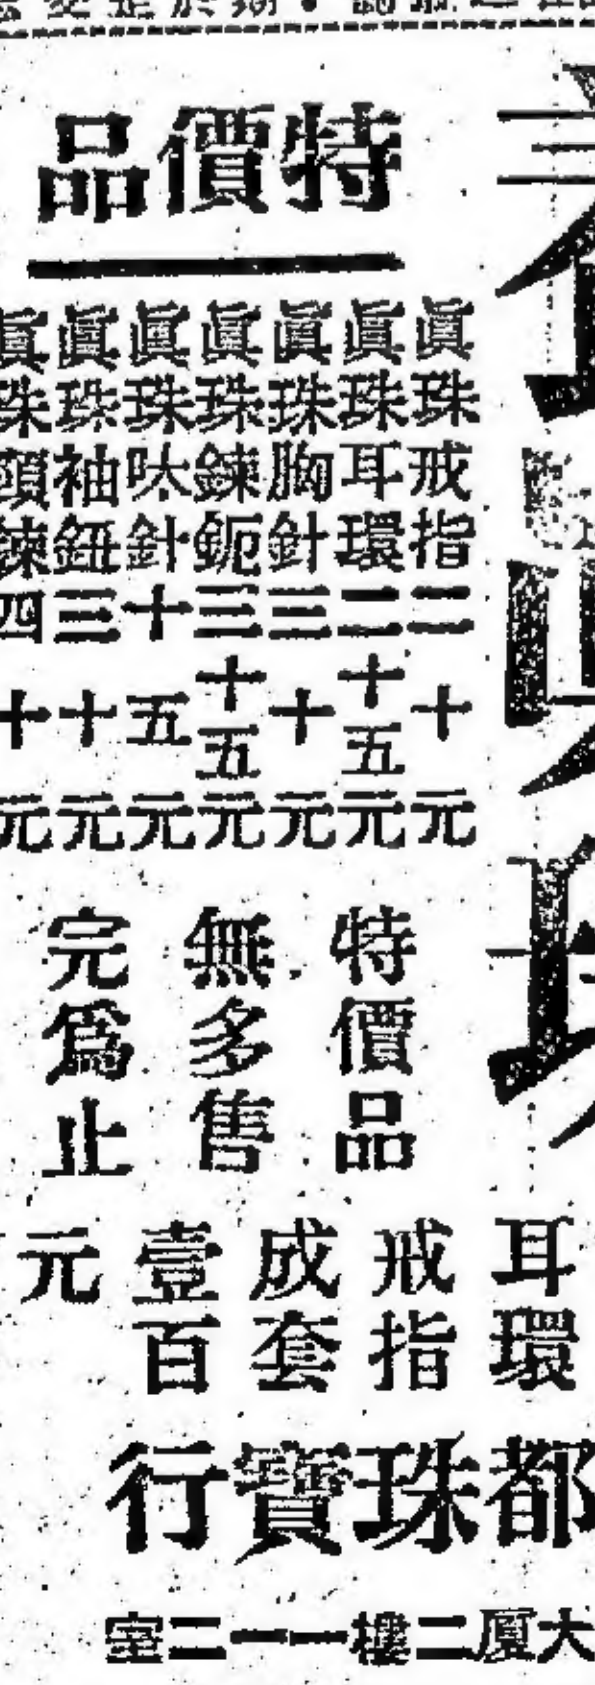 特價品
眞珠戒指二十元
眞珠耳環二十五元
眞珠胸針三十元
眞珠鍊鈪三十五元
眞珠呔針十五元
眞珠袖鈕三十元
眞珠頸鍊四十元
特價品
無多售
完爲止
耳環
戒指
成套
壹百
元
都珠寶行
大廈二樓一一二室